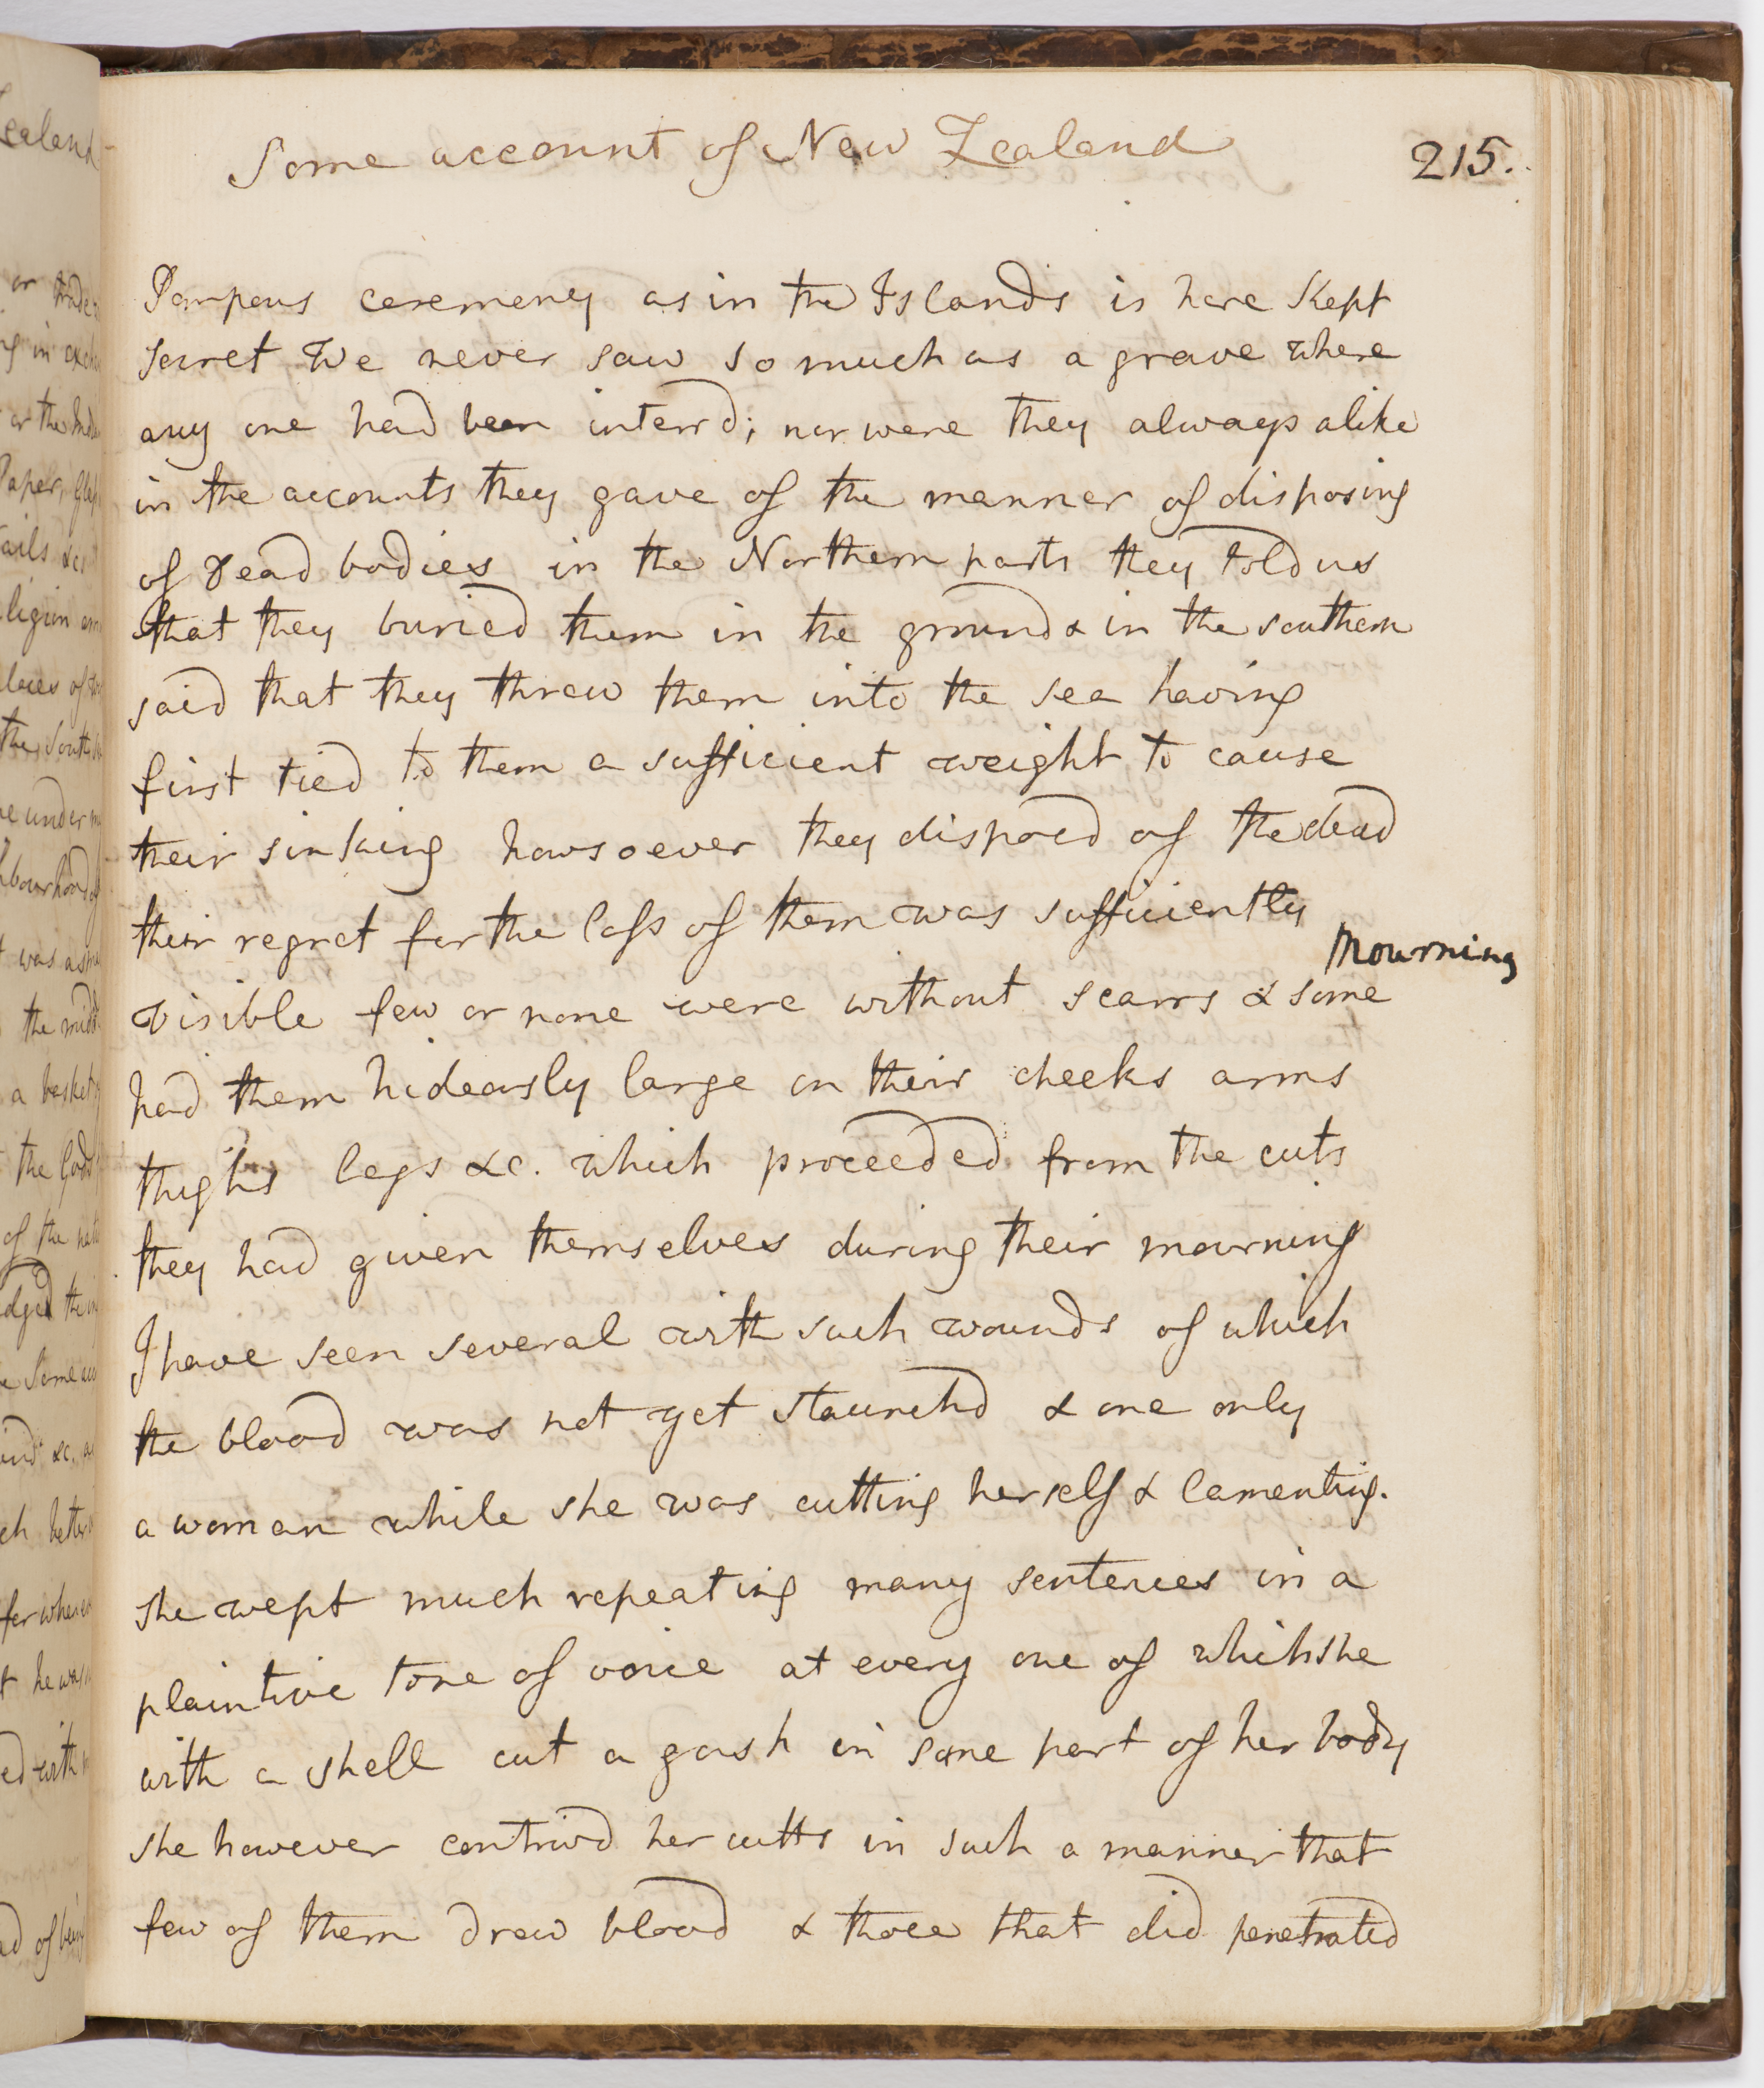 Some account of New Zealand
215.
Pompous ceremony as in the Islands is here Kept
secret We never saw so much as a grave where
any one had been interrd; nor were they always alike
in the accounts they gave of the manner of disposing
of dead bodies in the Northern parts they told us
that they buried them in the ground & in the southern
said that they threw them into the sea having
first tied to them a sufficient weight to cause
their sinking howsoever they disposd of the dead
their regret for the loss of them was sufficiently
Mourning
visible few or none were without scarrs & some
had them hideously large on their cheeks arms
thighs legs &c. which proceeded from the cuts
they had given themselves during their mourning
I have seen several with such wounds of which
the blood was not yet staunchd & one only
a woman while she was cutting herself & lamenting.
she wept much repeating many sentences in a
plaintive tone of voice at every one of which she
with a shell cut a gash in some part of her body
she however contrivd her cutts in such a manner that
few of them drew blood & those that did penetrated